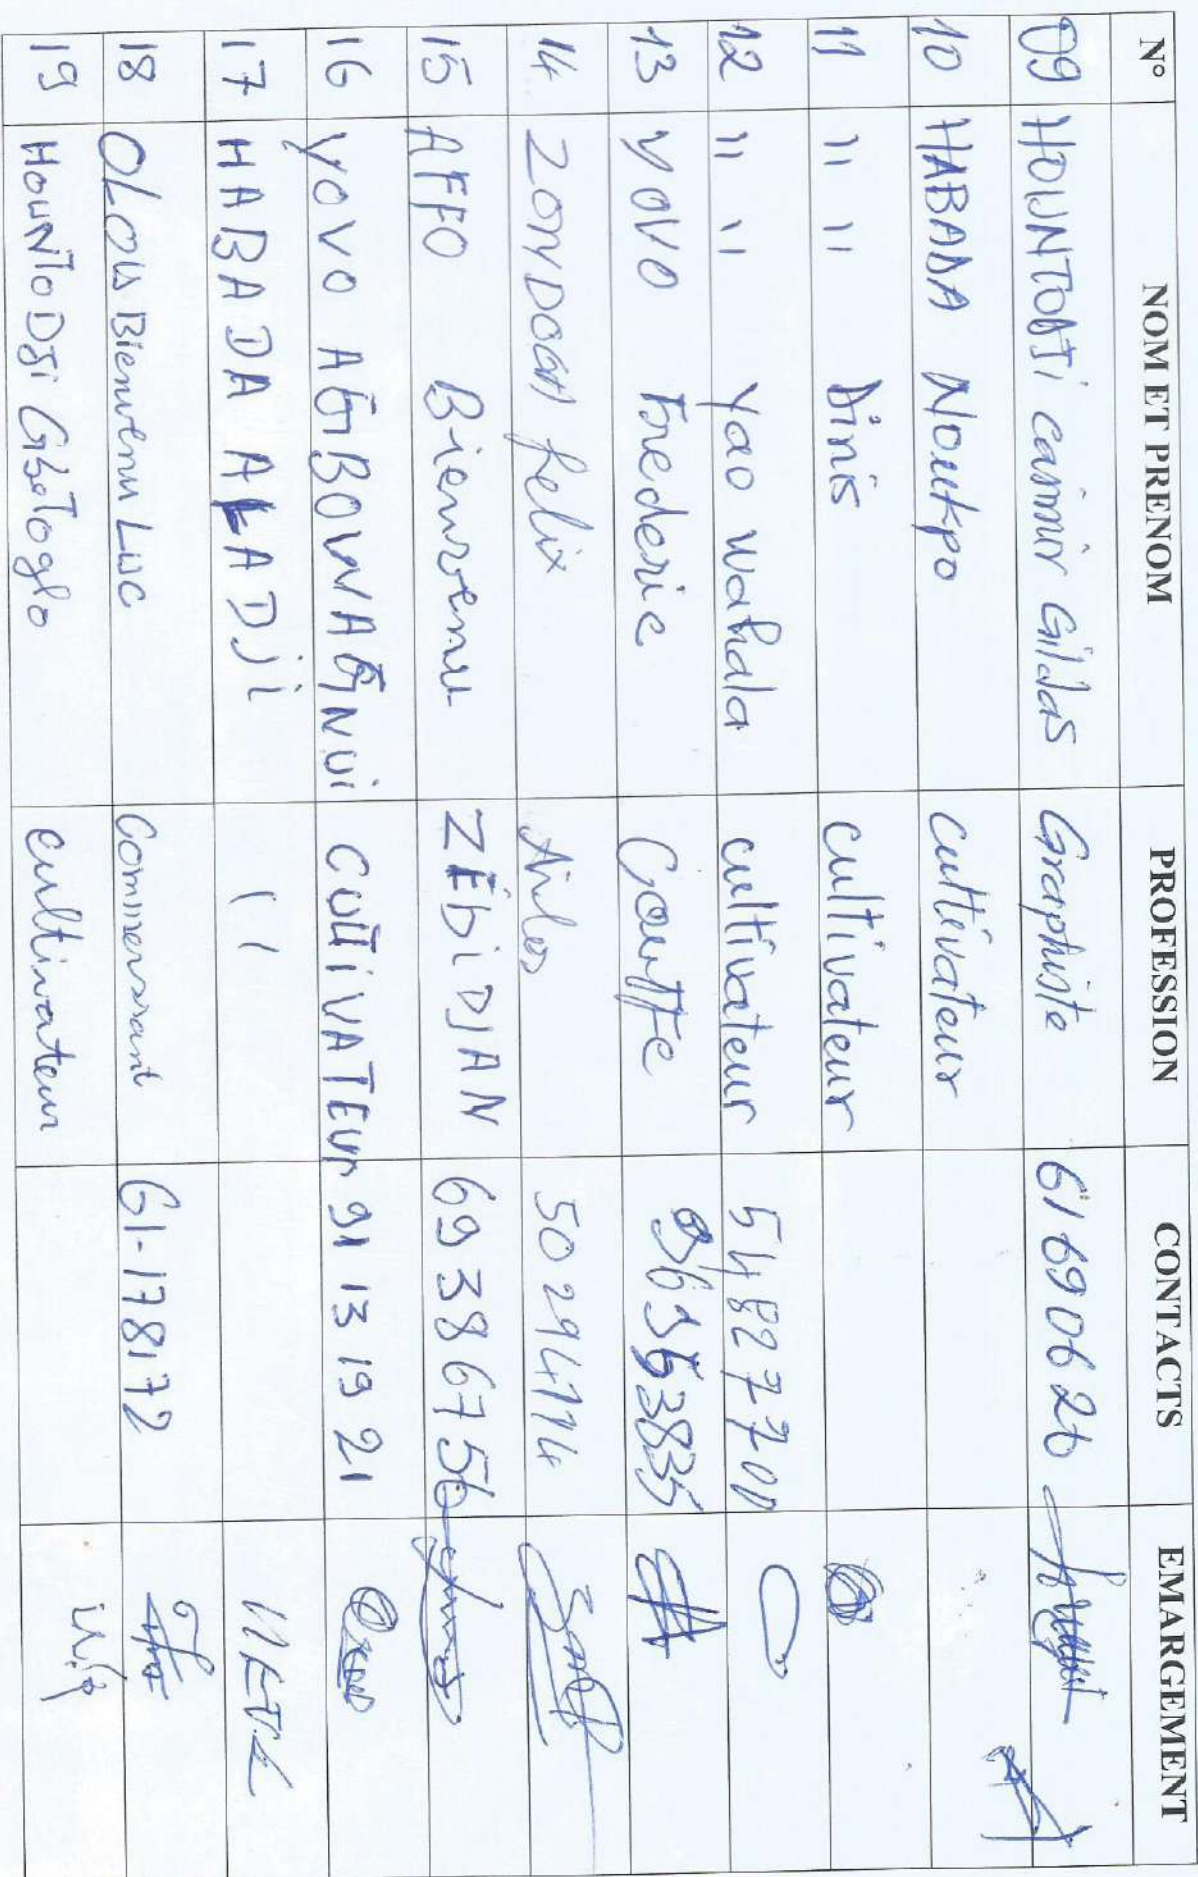 N° NOM ET PRENOM PROFESSION CONTACTS EMARGEMENT
09 HOUNTODJI Casimir Gildas Graphiste 61690626
10 HABADA Noukpo cultivateur
11 " " Dinis cultivateur
12 " " Yao wahala cultivateur 54827700
13 YOVO Frederic Coiffe
14 ZONDOGA felix 50294114
15 AFFO Bienvenu ZÉDiDJAN 69386756
16 YOVO AGBOWAGNUi CULTIVATEUr 91 13 19 21
17 HABADA ALADJi "
18 OLOUS Bienvenu Luc Commerssant 61-178172
19 HOUNTODJi Gbetoglo cultivateur